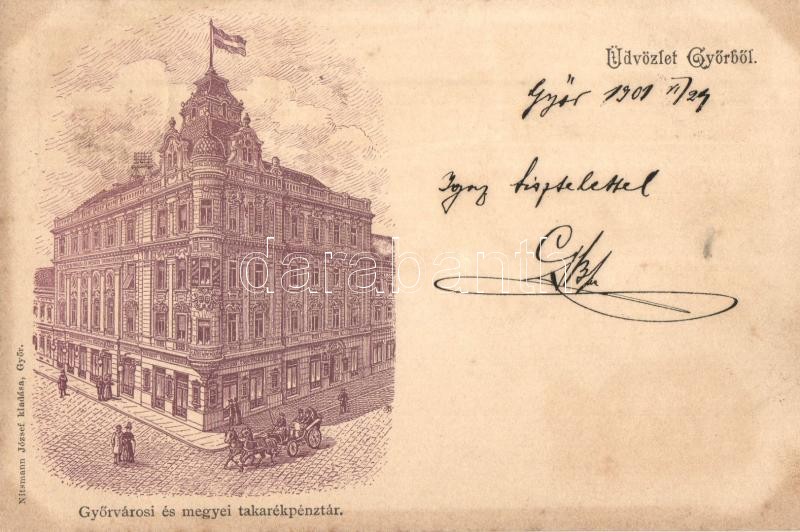 Üdvözlet Győrből.
Győr 1901 II/24
Igaz tisztelettel
darabanth
Győrvárosi és megyei takarékpénztár.
Nitsmann József kiadása, Győr.